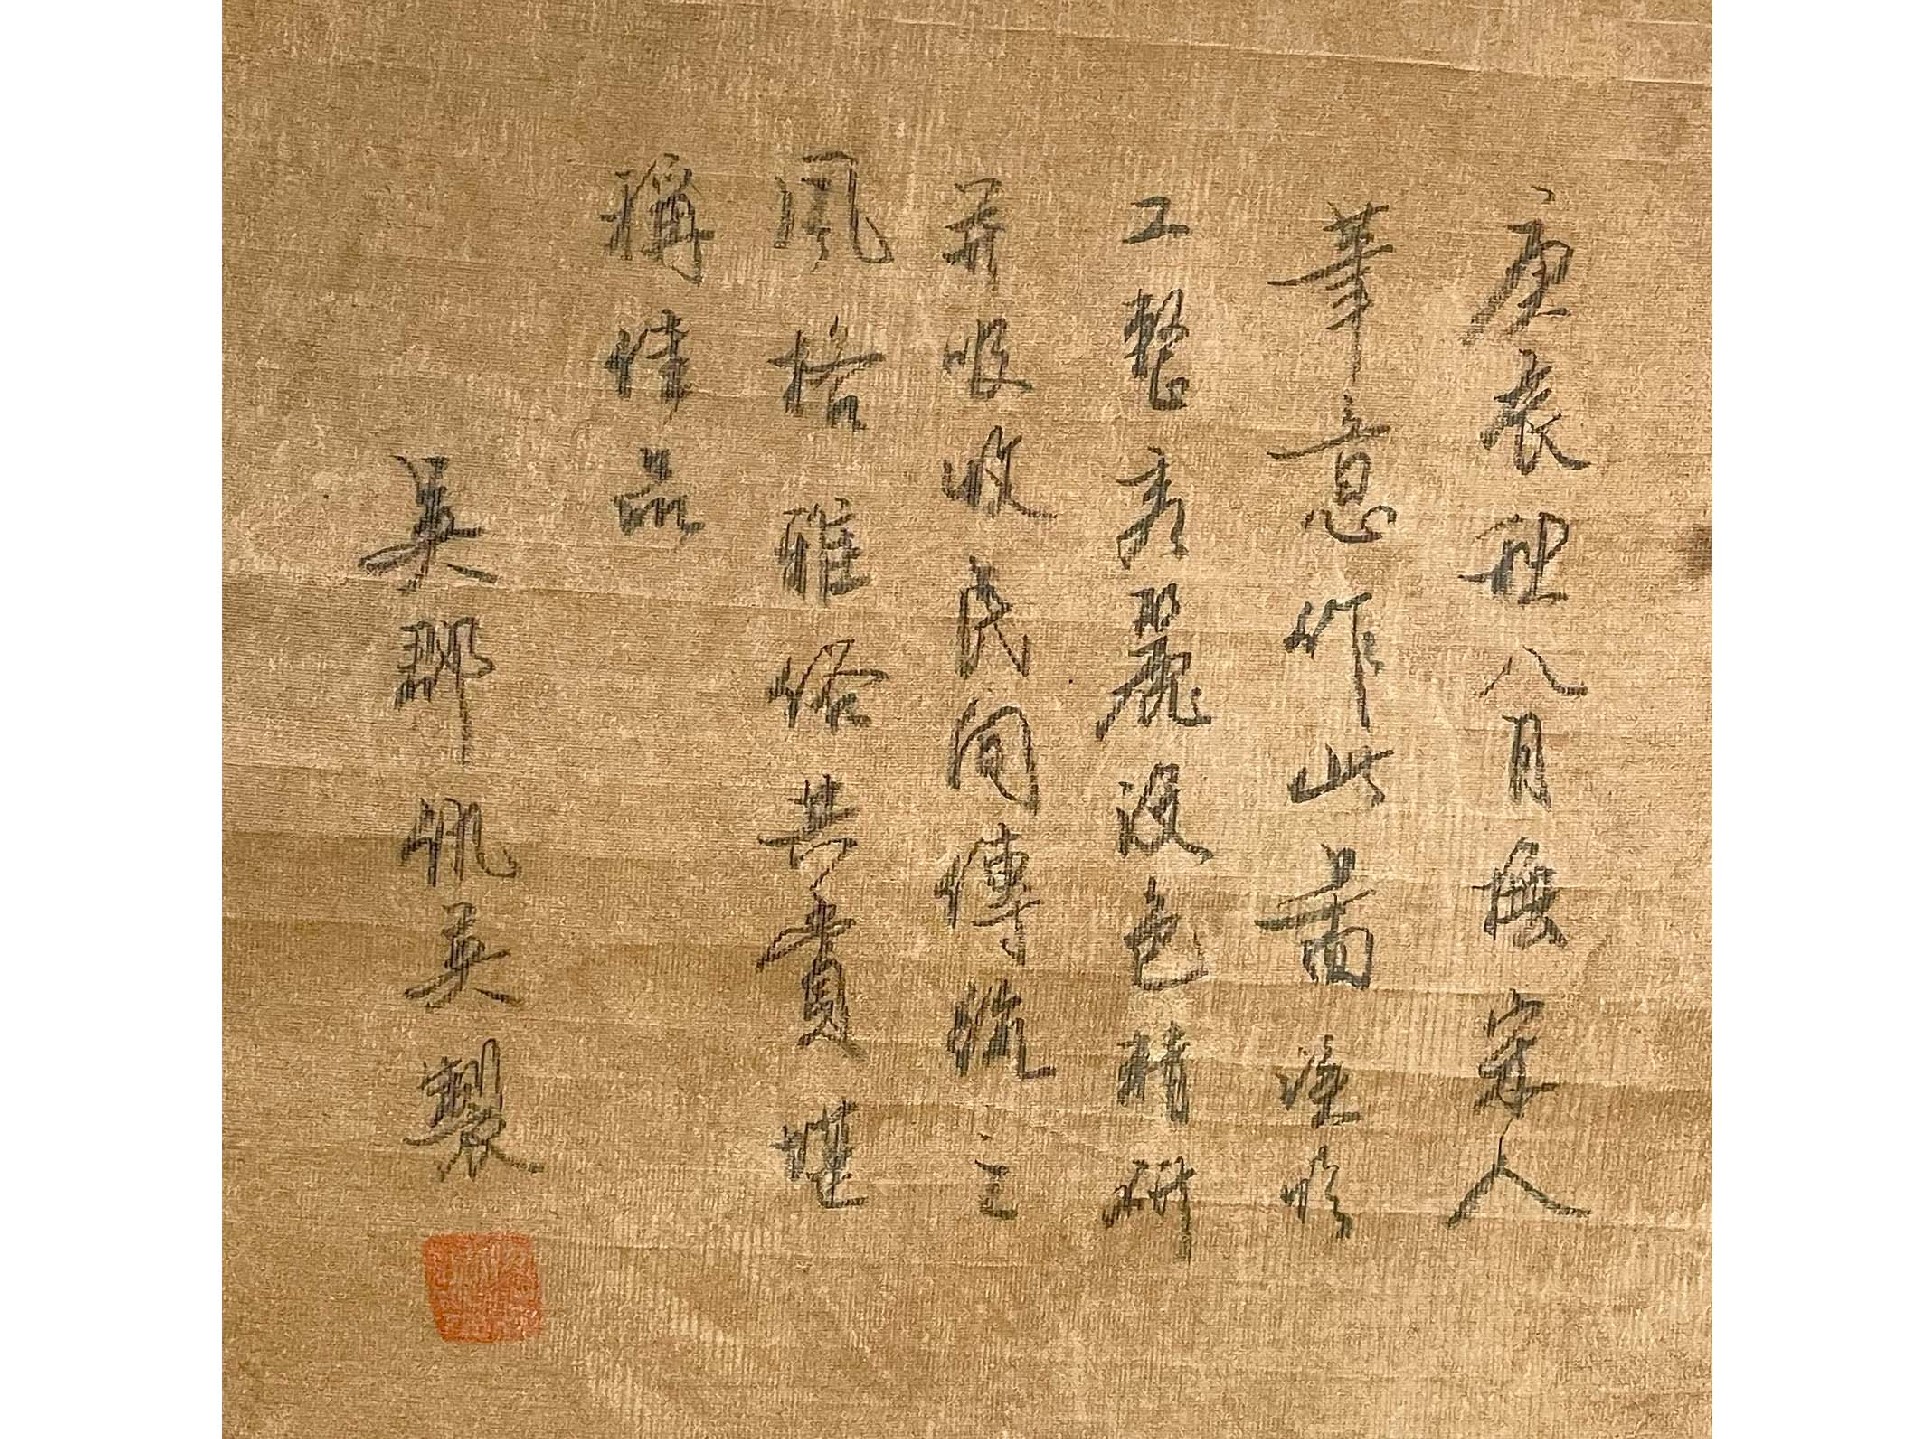 庚辰秋八月撫宋人
筆意作此圖於
工整秀麗設色精研
並吸收民間傳統之
風格雅俗共賞堪
稱佳品
吳郡佩英製